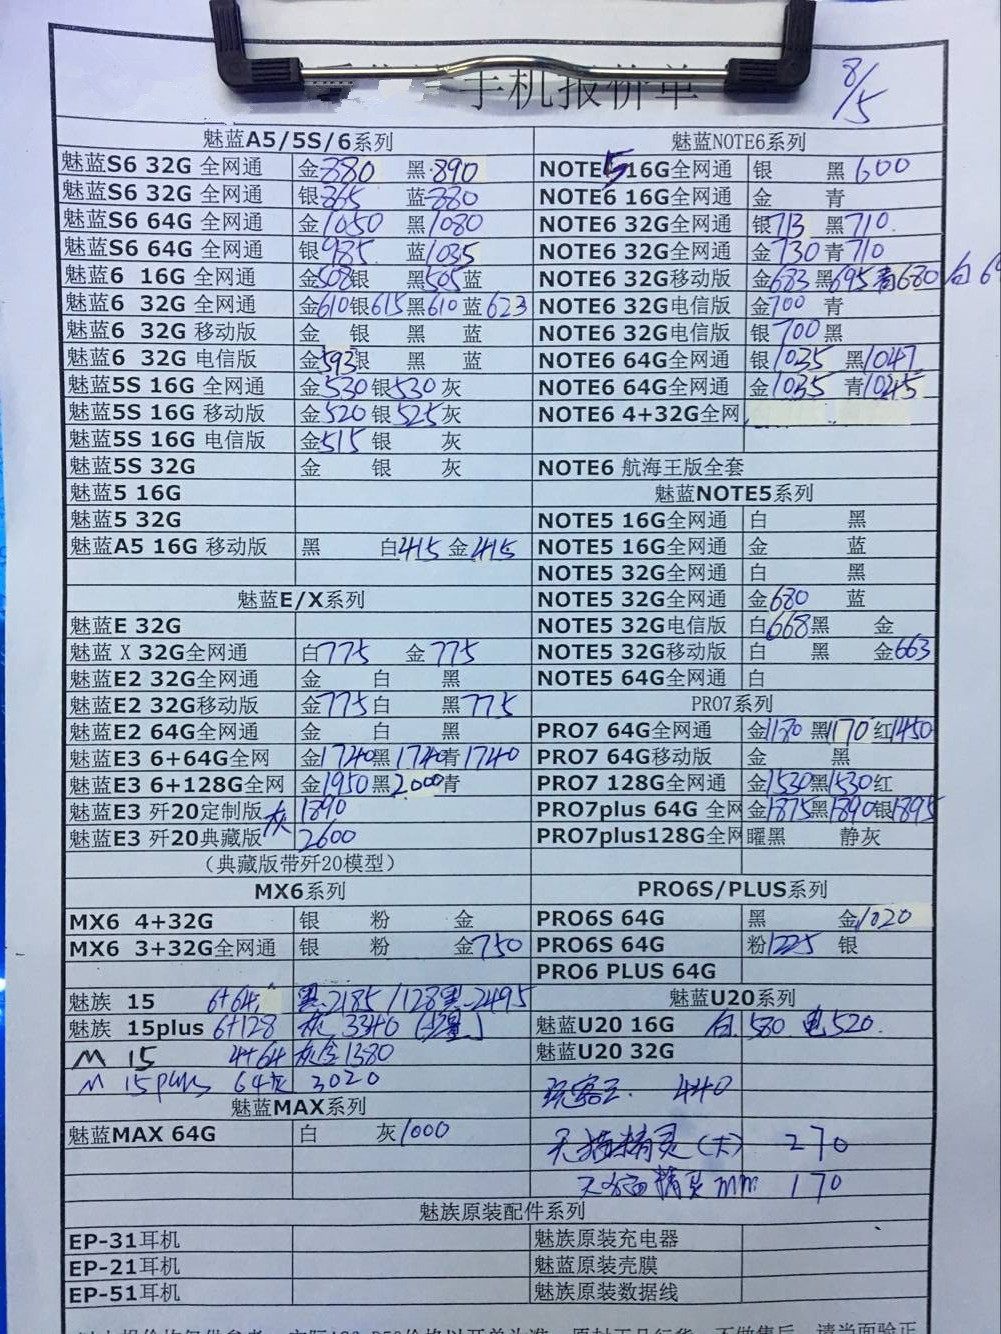 手机报价单
8/5
魅蓝A5/5S/6系列
魅蓝S6 32G 全网通 金880 黑890
魅蓝S6 32G 全网通 银865 蓝880
魅蓝S6 64G 全网通 金1050 黑1080
魅蓝S6 64G 全网通 银985 蓝1035
魅蓝6 16G 全网通 金508银 黑505蓝
魅蓝6 32G 全网通 金610银615黑610蓝623
魅蓝6 32G 移动版 金 银 黑 蓝
魅蓝6 32G 电信版 金593银 黑 蓝
魅蓝5S 16G 全网通 金530银530灰
魅蓝5S 16G 移动版 金520银525灰
魅蓝5S 16G 电信版 金515银 灰
魅蓝5S 32G 金 银 灰
魅蓝5 16G
魅蓝5 32G
魅蓝A5 16G 移动版 黑 白415 金415
魅蓝E/X系列
魅蓝E 32G
魅蓝X 32G全网通 白775 金775
魅蓝E2 32G全网通 金 白 黑
魅蓝E2 32G移动版 金775白 黑775
魅蓝E2 64G全网通 金 白 黑
魅蓝E3 6+64G全网 金1740黑1740青1740
魅蓝E3 6+128G全网 金1950黑2000青
魅蓝E3 歼20定制版 灰 1890
魅蓝E3 歼20典藏版 2600
（典藏版带歼20模型）
MX6系列
MX6 4+32G 银 粉 金
MX6 3+32G全网通 银 粉 金750
魅族 15 6+64 黑2185/128黑2495
魅族 15plus 6+128 灰 3340
M 15 4+64 灰金1380
M 15plus 64灰 3020
魅蓝MAX系列
魅蓝MAX 64G 白 灰1000
魅蓝NOTE6系列
NOTE5 16G全网通 银 黑600
NOTE6 16G全网通 金 青
NOTE6 32G全网通 银713 黑710
NOTE6 32G全网通 金730青710
NOTE6 32G移动版 金683黑695青680白
NOTE6 32G电信版 金700 青
NOTE6 32G电信版 银700黑
NOTE6 64G全网通 银1035 黑1047
NOTE6 64G全网通 金1035 青1045
NOTE6 4+32G全网
NOTE6 航海王版全套
魅蓝NOTE5系列
NOTE5 16G全网通 白 黑
NOTE5 16G全网通 金 蓝
NOTE5 32G全网通 白 黑
NOTE5 32G全网通 金680 蓝
NOTE5 32G电信版 白668黑 金
NOTE5 32G移动版 白 黑 金663
NOTE5 64G全网通 白
PRO7系列
PRO7 64G全网通 金1170黑1170红1450
PRO7 64G移动版 金 黑
PRO7 128G全网通 金1530黑1530红
PRO7plus 64G 全网 金1875黑1890银1895
PRO7plus128G全网 曜黑 静灰
PRO6S/PLUS系列
PRO6S 64G 黑 金1020
PRO6S 64G 粉1225 银
PRO6 PLUS 64G
魅蓝U20系列
魅蓝U20 16G 白580 电520
魅蓝U20 32G
玩客云 440
天猫精灵(大) 270
天猫精灵 mm 170
魅族原装配件系列
EP-31耳机 魅族原装充电器
EP-21耳机 魅蓝原装壳膜
EP-51耳机 魅族原装数据线